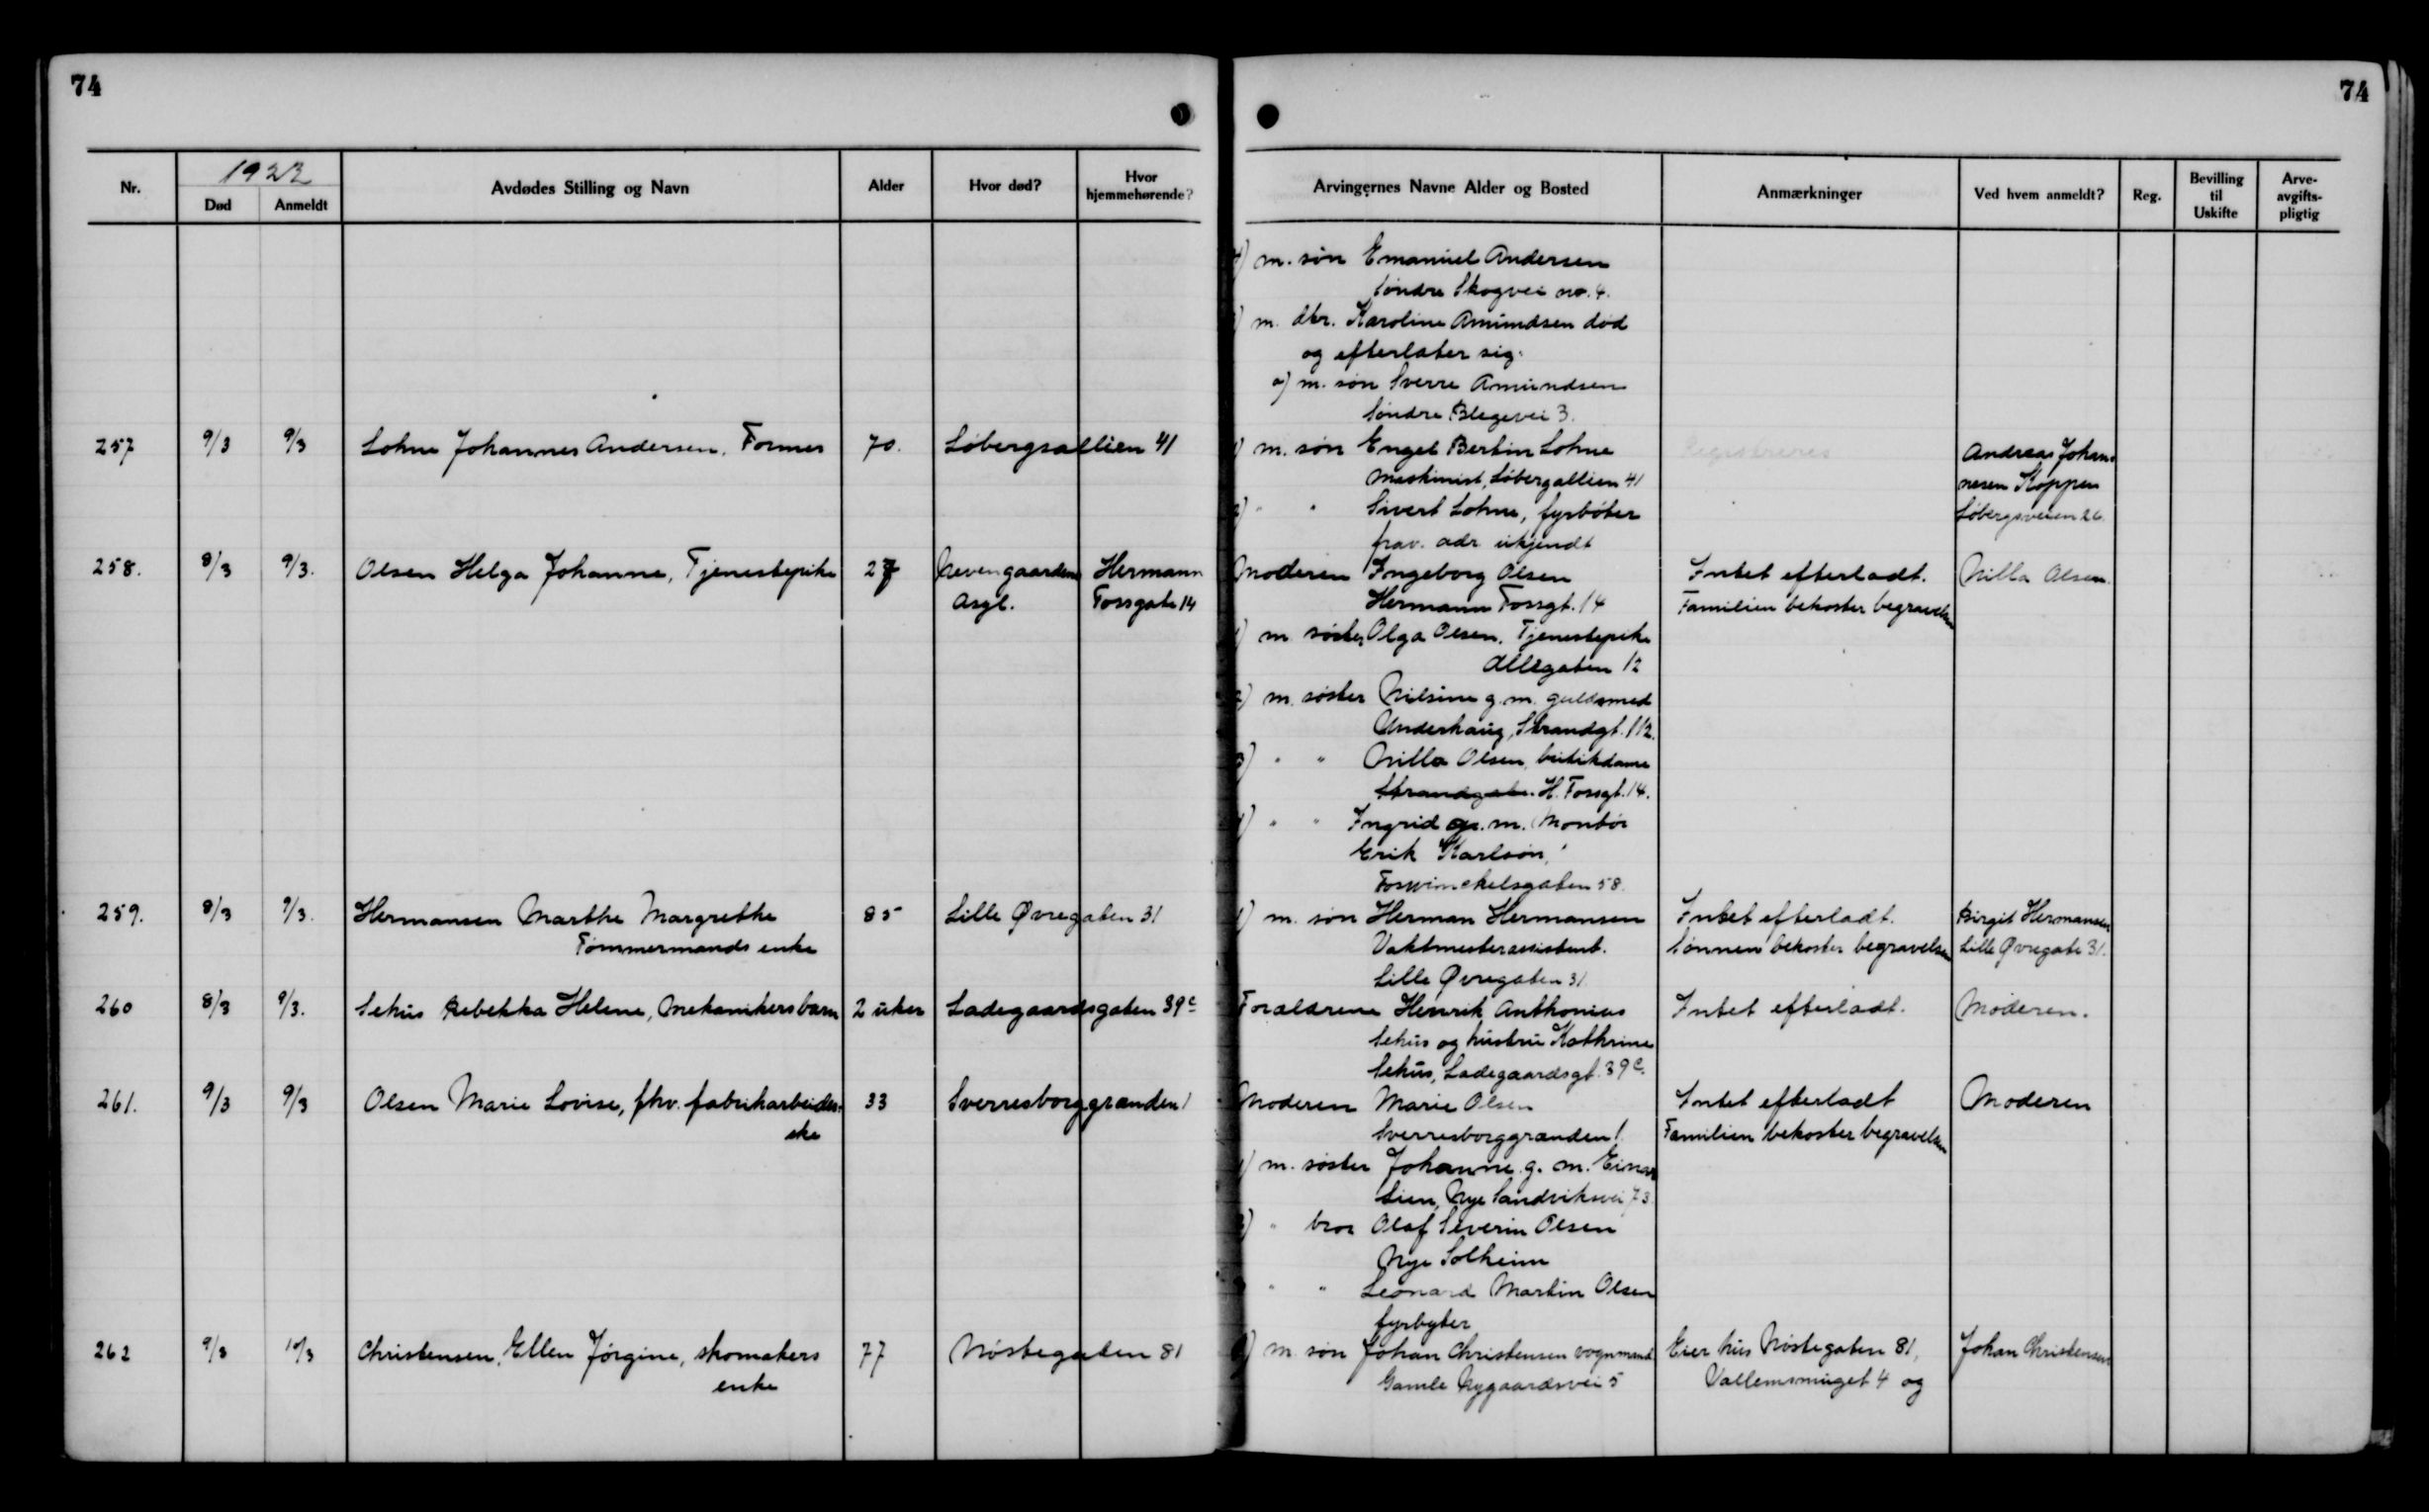 74
74
Nr.
1922
Død
Anmeldt
Avdødes Stilling og Navn
Alder
Hvor død?
Hvor hjemmehørende?
Arvingernes Navne Alder og Bosted
Anmærkninger
Ved hvem anmeldt?
Reg.
Bevilling til Uskifte
Arve-avgifts-pligtig
m. søn Emanuel Andersen
Søndre Skogvei no. 4.
m. dtr. Karoline Amundsen død
og efterlater sig:
a) m. søn Sverre Amundsen
Søndre Blegevei 3.
257 9/3 9/3 Lohne Johannes Andersen, Former 70. Løbergsallien 41
1) m. søn Engel Bertin Lohne Registreres Andreas Johan-
Maskinist, Løbergallien 41 nesen Koppen
2) " " Sivert Lohne, fyrbøter Løbergsveien 26.
frav. adr. ukjendt
258. 8/3 9/3. Olsen Helga Johanne, Tjenestepike 27 Nevengaardens Hermann
Asyl. Fossgate 14
Moderen Ingeborg Olsen Intet efterladt. Nilla Olsen.
Hermann Fossgt. 14 Familien bekoster begravelsen
1) m. søster Olga Olsen, Tjenestepike
Allégaten 12
2) m. søster Nilsine g. m. guldsmed
Underhaug, Strandgt. 112.
3) " " Nilla Olsen, butikdame
Strandgaten H. Fossgt. 14.
4) " " Ingrid g. m. Montør
Erik Karlson,
Foswinckelsgaten 58.
259. 8/3 9/3. Hermansen Marthe Margrethe 85 Lille Øvregaten 31
Tømmermands enke
1) m. søn Herman Hermansen Intet efterladt. Birgit Hermansen
Vaktmesterassistent. Sønnen bekoster begravelsen Lille Øvregate 31.
Lille Øvregaten 31
260 8/3 9/3. Sehus Rebekka Helene, Mekanikersbarn 2 uker Ladegaardsgaten 39c
Forældrene Henrik Anthonius Intet efterladt. Moderen.
Sehus og hustru Kathrine
Sehus, Ladegaardsgt. 39c.
261. 9/3 9/3 Olsen Marie Lovise, fhv. fabrikarbeider- 33 Sverresborggrenden 1
ske
Moderen Marie Olsen Intet efterladt Moderen
Sverresborggranden 1. Familien bekoster begravelsen
1) m. søster Johanne g. m. Einar
Lien, Nye Sandviksvei 73.
2) " bror Olaf Severin Olsen
Nye Solheim
" " Leonard Martin Olsen
fyrbøter
262 9/3 10/3 Christensen, Ellen Jørgine, skomakers 77 Nøstegaten 81
enke
m. søn Johan Christensen vognmand Eier hus Nøstegaten 81, Johan Christensen
Gamle Nygaardsvei 5 Vallemsmuget 4 og